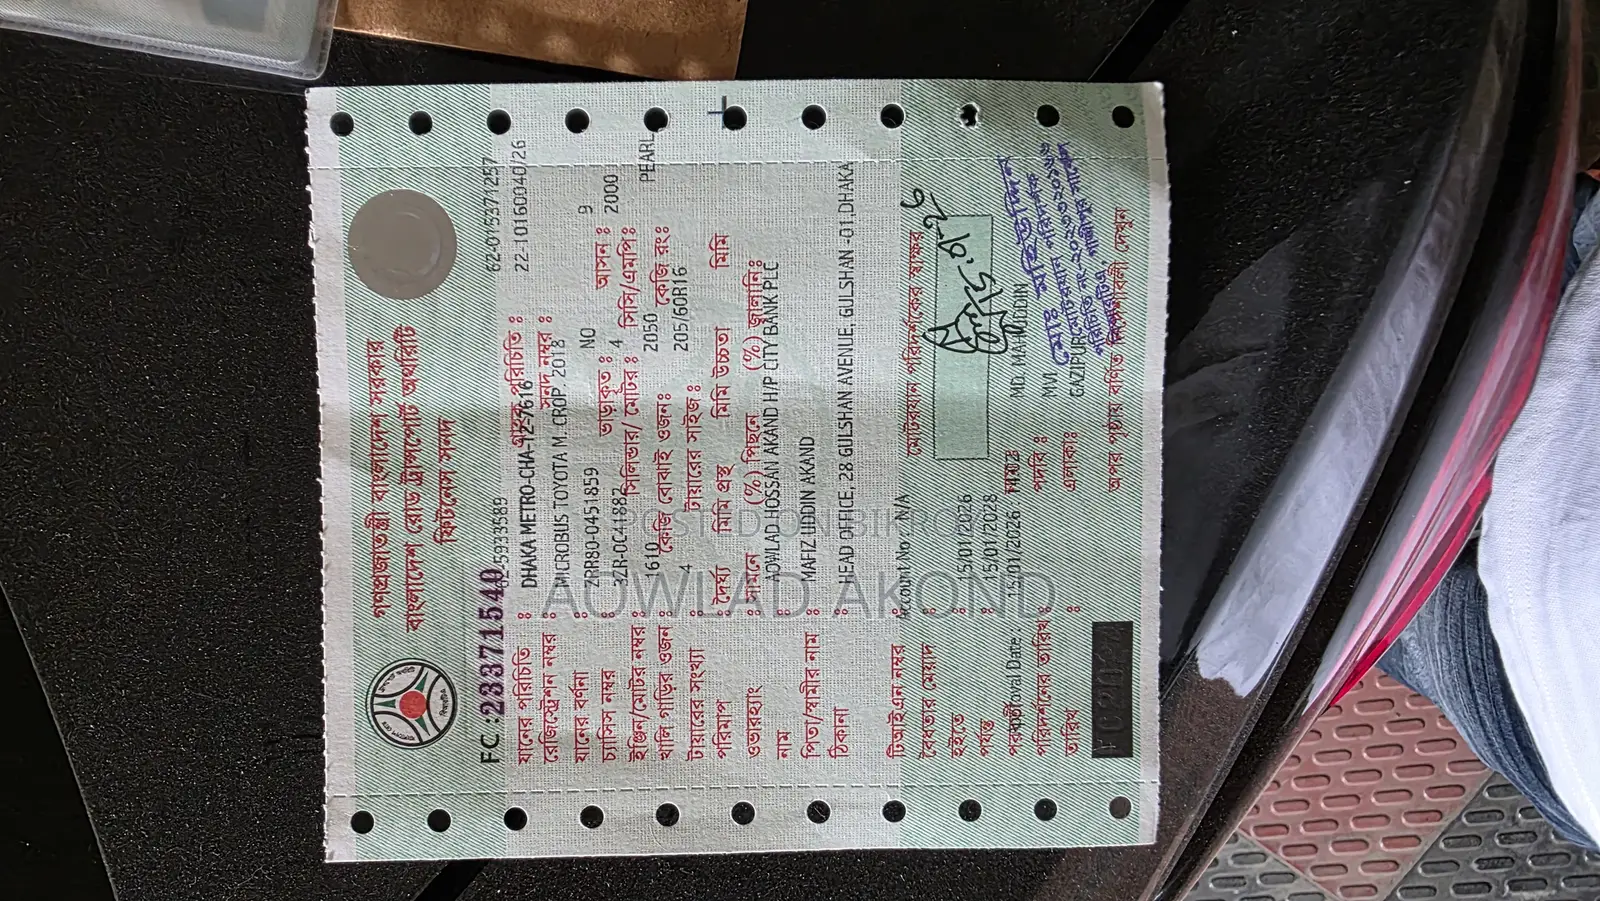 গণপ্রজাতন্ত্রী বাংলাদেশ সরকার
বাংলাদেশ রোড ট্রান্সপোর্ট অথরিটি
ফিটনেস সনদ
FC :2337 1540
5933589
62-015371257
যানের পরিচিতি :
গ্রাহক পরিচিতি :
22-10160040/26
রেজিস্ট্রেশন নম্বর : DHAKA METRO-CHA-12-7616
সনদ নম্বর :
যানের বর্ণনা : MICROBUS TOYOTA M.CROP. 2018
চ্যাসিস নম্বর : ZRR80-0451859
ভাড়াকৃত : NO
আসন : 9
ইঞ্জিন/মোটর নম্বর : 3ZR-0C41882
সিলিন্ডার/ মোটর : 4
সিসি/এমপি: 2000
খালি গাড়ির ওজন : 1610
কেজি বোঝাই ওজন: 2050
কেজি রং: PEARL
টায়ারের সংখ্যা : 4
টায়ারের সাইজ : 205/60R16
পরিমাপ : দৈর্ঘ্য মিমি প্রস্থ মিমি উচ্চতা মিমি
ওভারহ্যাং : সামনে (%) পিছনে (%) জ্বালানি:
নাম : AOWLAD HOSSAN AKAND H/P CITY BANK PLC
পিতা/স্বামীর নাম : MAFIZ UDDIN AKAND
ঠিকানা : HEAD OFFICE, 28 GULSHAN AVENUE, GULSHAN -01,DHAKA
POSTED ON BIKROY
AOWLAD AKOND
টিআইএন নম্বর : Account No : N/A
মোটরযান পরিদর্শকের স্বাক্ষর
বৈধতার মেয়াদ :
হইতে : 15/01/2026
পর্যন্ত : 15/01/2028
পরিদর্শনের তারিখ :
15/01/2026
MD. MAHIUDDIN
পদবি : MVI
তারিখ :
এলাকা: GAZIPUR
মোঃ মহিউদ্দিন
মোটরযান পরিদর্শক
অপর পৃষ্ঠায় বর্ণিত নির্দেশাবলী দেখুন